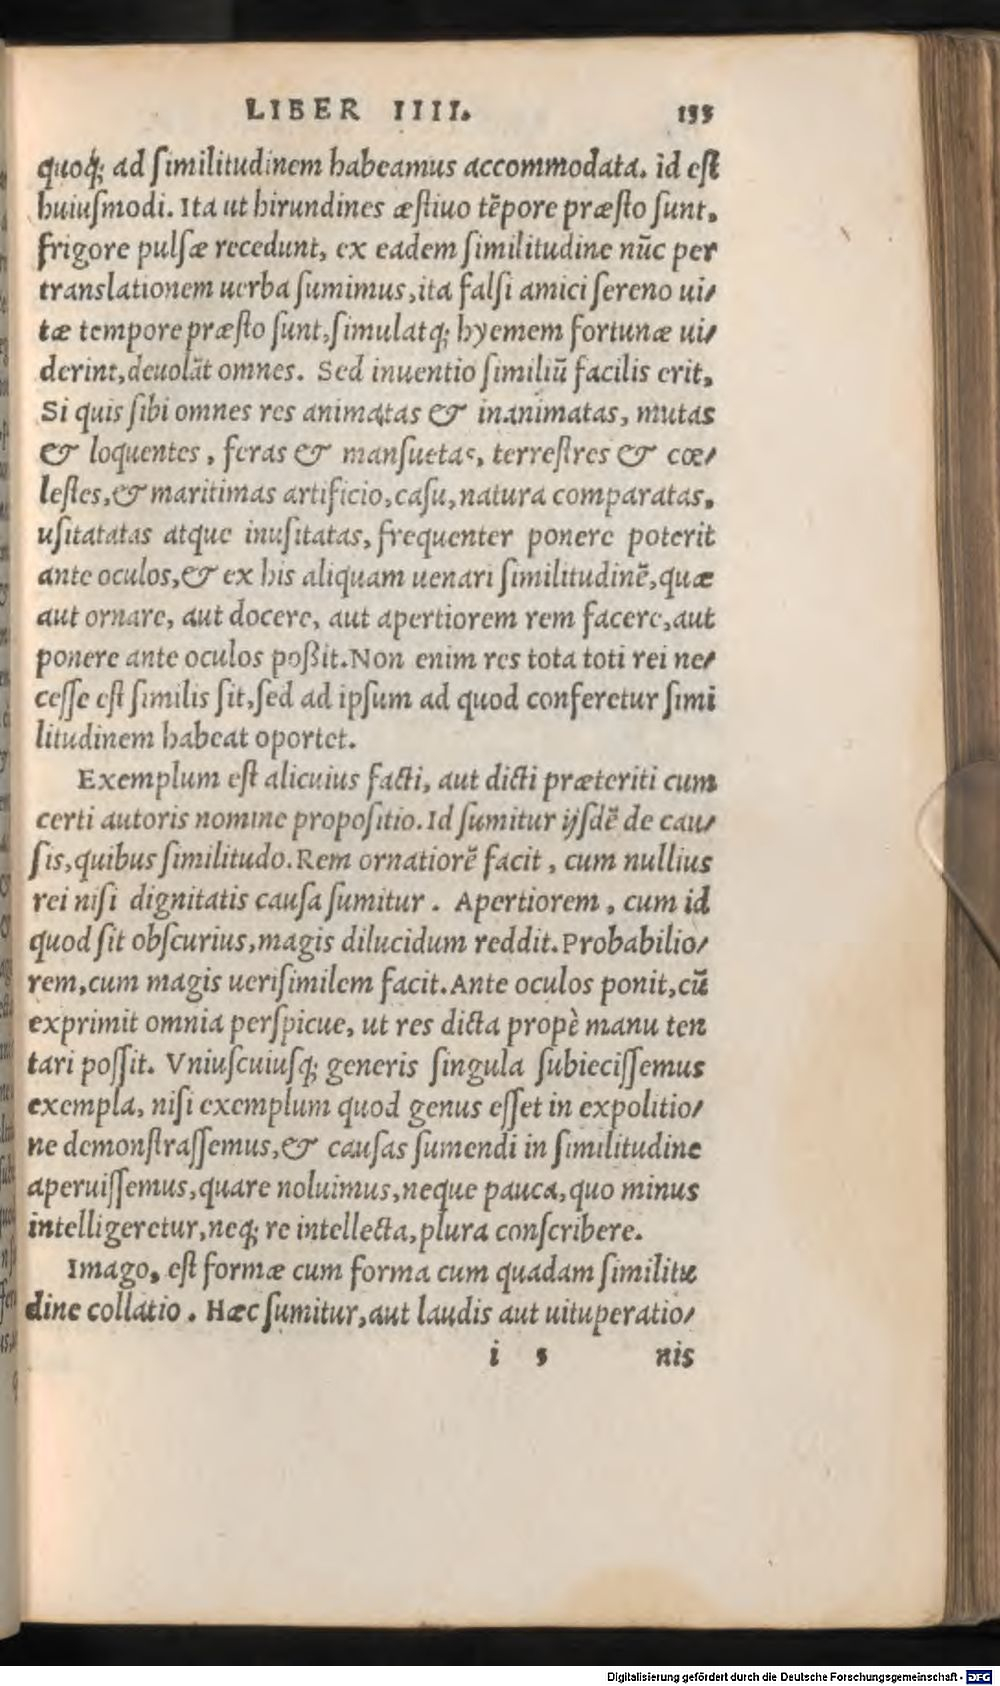 LIBER IIII. 155
quoq; ad ſimilitudinem habeamus accommodata. id eſt
huiuſmodi. Ita ut hirundines æſtiuo tẽpore præſto ſunt,
frigore pulſæ recedunt, ex eadem ſimilitudine nũc per
translationem uerba ſumimus,ita falſi amici ſereno ui⸗
tæ tempore præſto ſunt,ſimulatq; hyemem fortunæ ui⸗
derint,deuolãt omnes. Sed inuentio ſimiliũ facilis erit,
Si quis ſibi omnes res animatas & inanimatas, mutas
& loquentes, feras & manſuetas, terreſtres & cœ⸗
leſtes,& maritimas artificio,caſu,natura comparatas,
uſitatatas atque inuſitatas, frequenter ponere poterit
ante oculos,& ex his aliquam uenari ſimilitudinẽ,quæ
aut ornare, aut docere, aut apertiorem rem facere,aut
ponere ante oculos poßit.Non enim res tota toti rei ne⸗
ceſſe eſt ſimilis ſit,ſed ad ipſum ad quod conferetur ſimi
litudinem habeat oportet.
Exemplum eſt alicuius facti, aut dicti præteriti cum
certi autoris nomine propoſitio.Id ſumitur ijſdẽ de cau⸗
ſis,quibus ſimilitudo.Rem ornatiorẽ facit, cum nullius
rei niſi dignitatis cauſa ſumitur. Apertiorem, cum id
quod ſit obſcurius,magis dilucidum reddit.Probabilio⸗
rem,cum magis ueriſimilem facit.Ante oculos ponit,cũ
exprimit omnia perſpicue, ut res dicta propè manu ten
tari poſſit. Vniuſcuiuſq; generis ſingula ſubieciſſemus
exempla, niſi exemplum quod genus eſſet in expolitio⸗
ne demonſtraſſemus,& cauſas ſumendi in ſimilitudine
aperuiſſemus,quare noluimus,neque pauca,quo minus
intelligeretur,neq; re intellecta,plura conſcribere.
Imago, eſt formæ cum forma cum quadam ſimilitu
dine collatio. Hæc ſumitur,aut laudis aut uituperatio⸗
i 5 nis
Digitalisierung gefördert durch die Deutsche Forschungsgemeinschaft - DFG